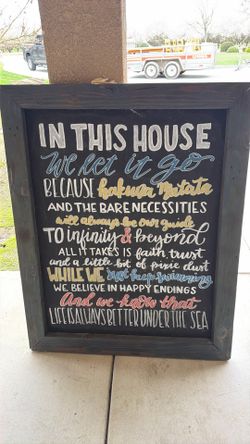 IN THIS HOUSE
We let it go
BECAUSE hakuna Matata
AND THE BARE NECESSITIES
will always be our guide
TO infinity & beyond
ALL IT TAKES IS FAITH TRUST
and a little bit of pixie dust
WHILE WE just keep swimming
WE BELIEVE IN HAPPY ENDINGS
And we know that
LIFE IS ALWAYS BETTER UNDER THE SEA